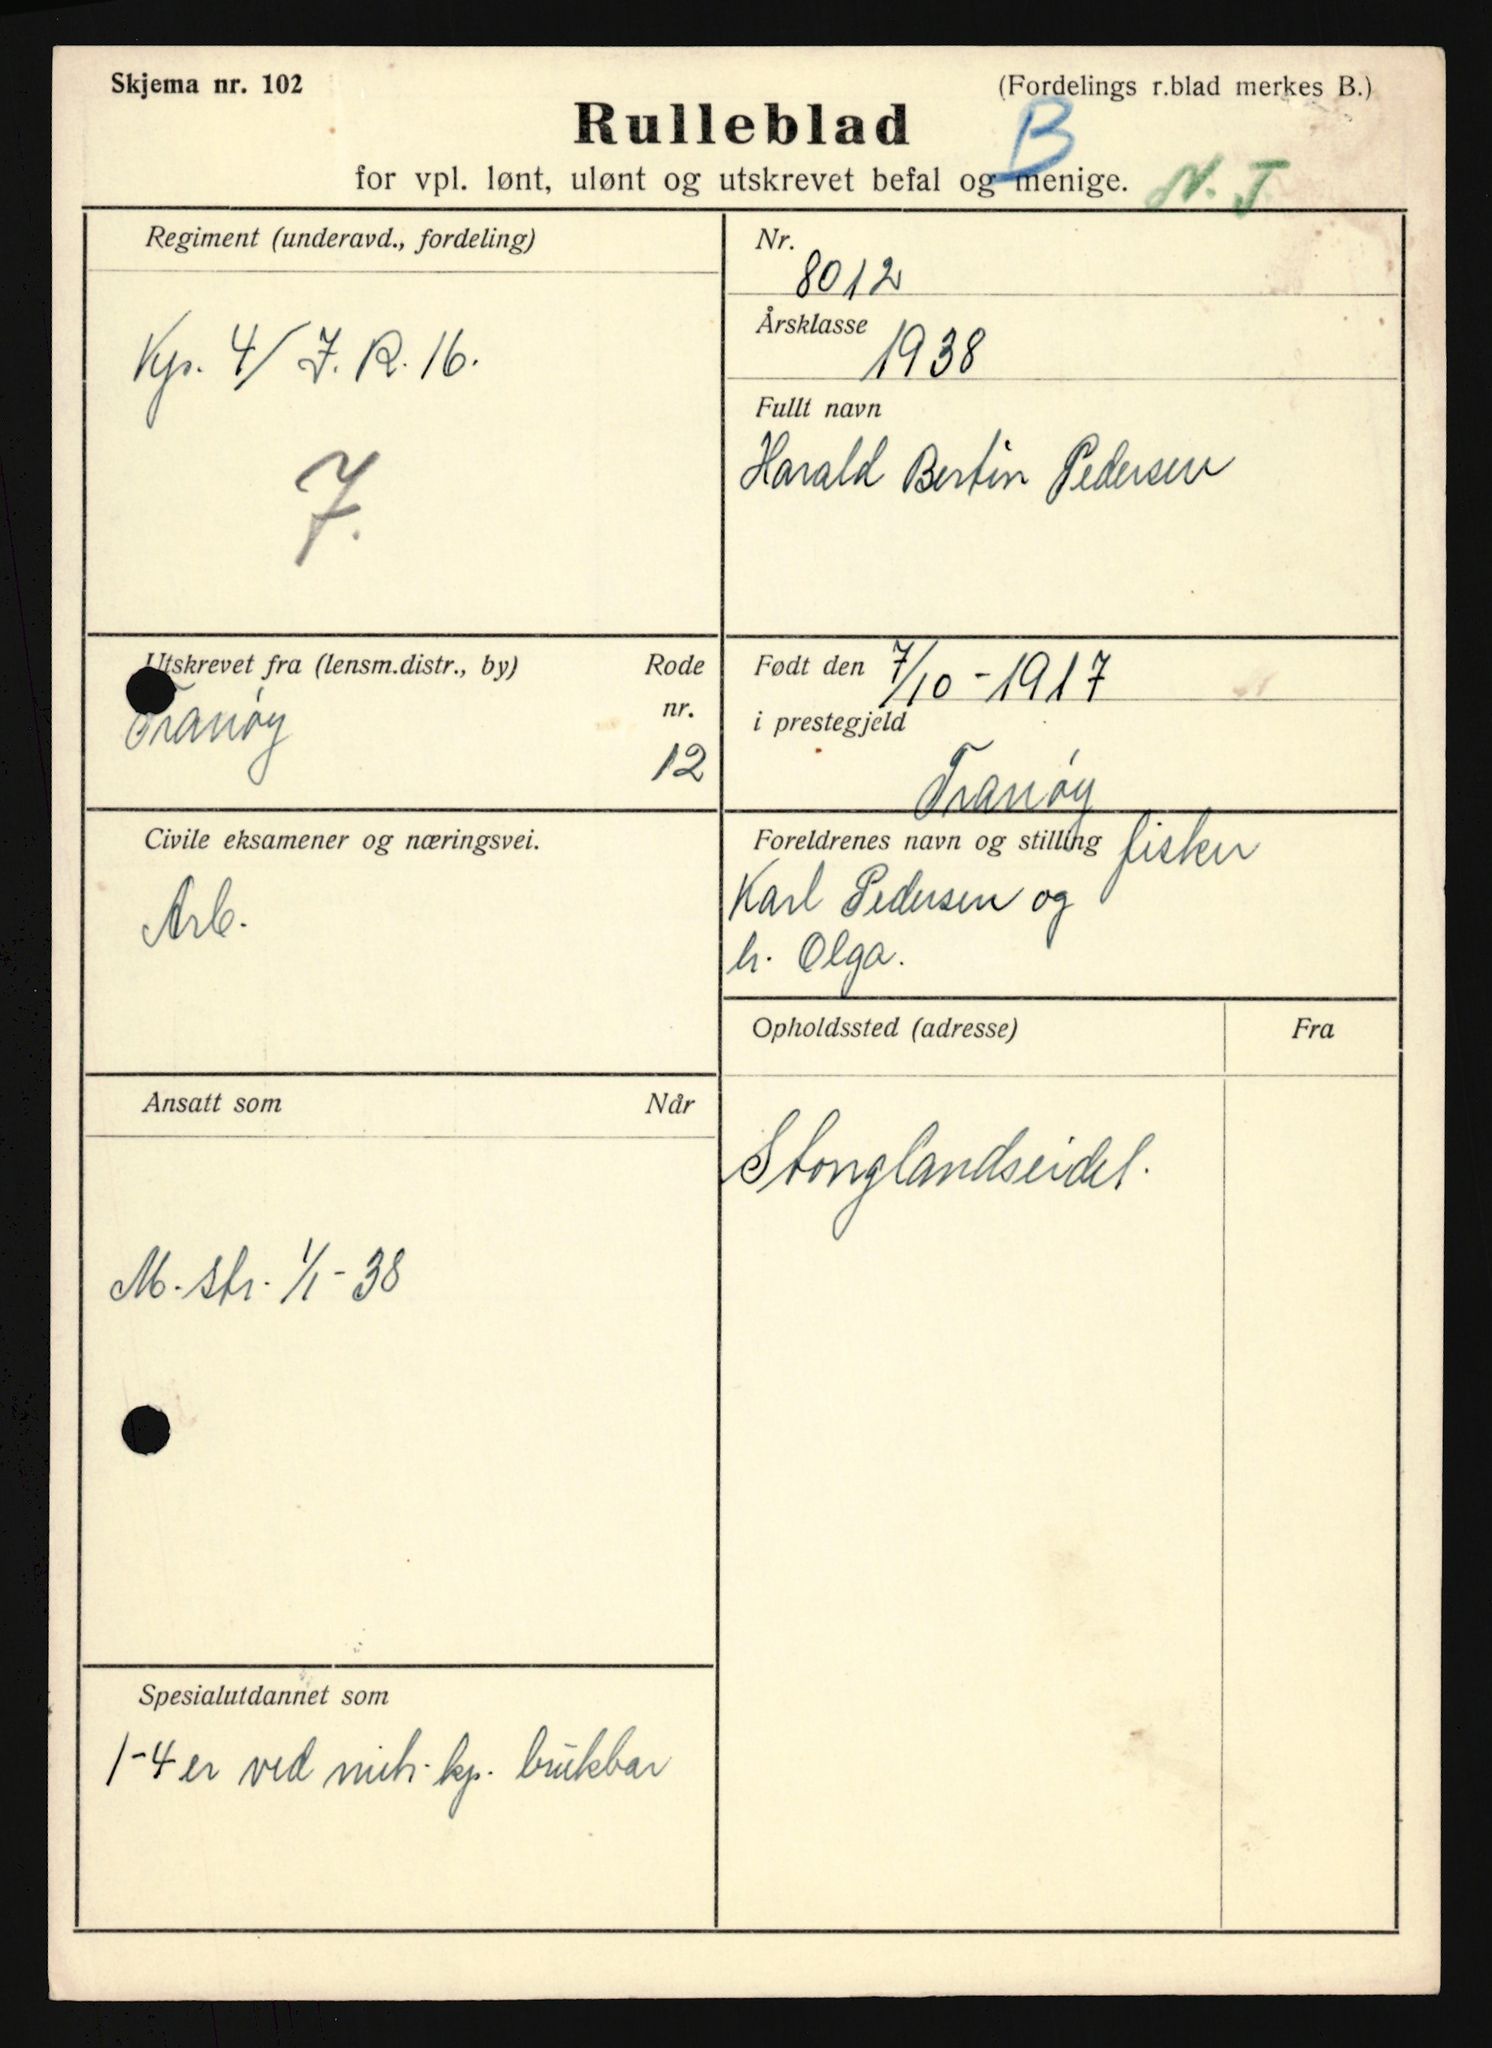 Skjema nr. 102
(Fordelings r.blad merkes B.)
Rulleblad
B
for vpl. lønt, ulønt og utskrevet befal og menige.
N. J.
Regiment (underavd., fordeling)
Kp. 4/ J. R. 16.
7.
Nr.
8012
Årsklasse
1938
Fullt navn
Harald Bertin Pedersen
Utskrevet fra (lensm.distr., by)
Rode
nr.
Tranøy
12
Født den 7/10-1917
i prestegjeld
Tranøy
Civile eksamener og næringsvei.
Arb.
Foreldrenes navn og stilling fisker
Karl Pedersen og
h. Olga.
Opholdssted (adresse)
Fra
Stonglandseidet.
Ansatt som
Når
M. str. 1/1-38
Spesialutdannet som
1-4 er ved mitr. kp. brukbar